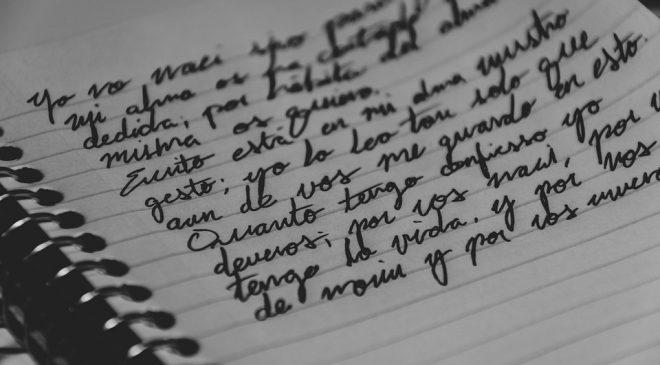 Yo no naci sino para
mi alma os ha cortado
dedida, por hábito del alma
misma os quiero.
Escrito está en mi alma vuestro
gesto; yo lo leo tan solo que
aun de vos me guardo en esto.
Quanto tengo confiesso yo
deveros; por vos naci, por
tengo la vida, y por vos
de morir y por vos muero